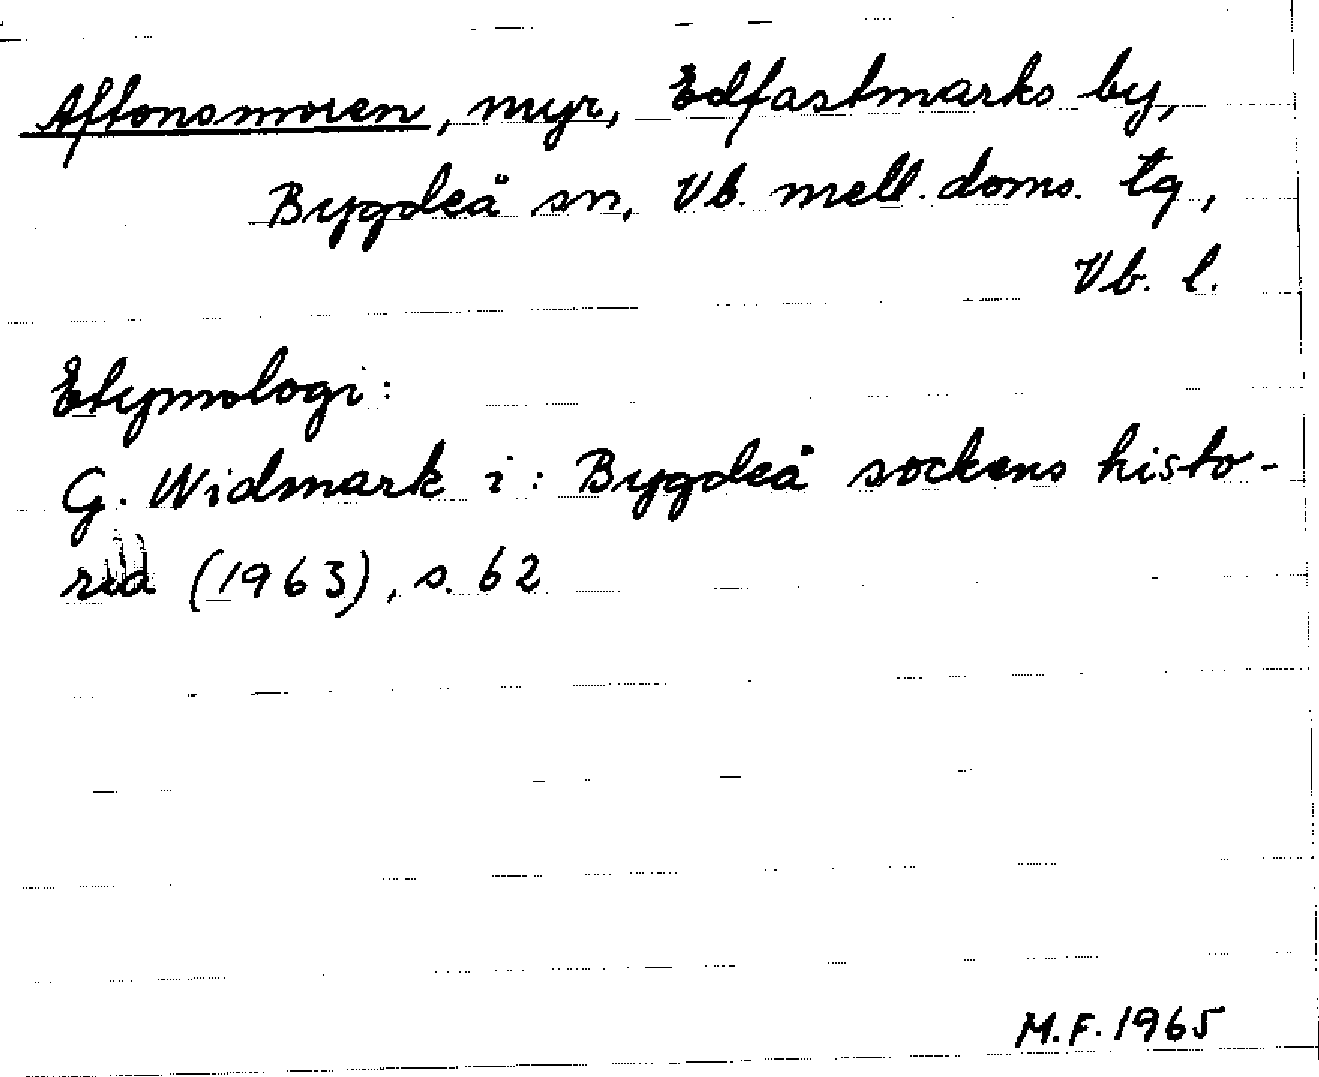 Aftonsmoren, myr, Edfastmarks by,
Bygdeå sn, Vb. mell. doms. tg,
Vb. l.
Etymologi:
G. Widmark i: Bygdeå sockens histo-
ria (1963), s. 62
M.F. 1965